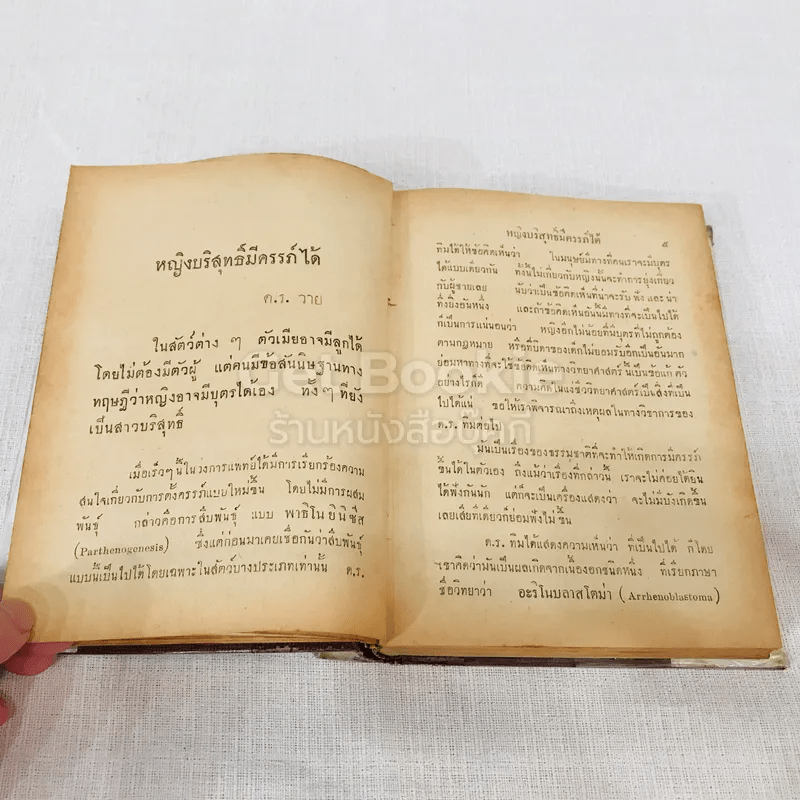 หญิงบริสุทธิ์มีครรภ์ได้
ค.ร. วาย
ในสัตว์ต่าง ๆ ตัวเมียอาจมีลูกได้
โดยไม่ต้องมีตัวผู้ แต่คนมีข้อสันนิษฐานทาง
ทฤษฎีว่าหญิงอาจมีบุตรได้เอง ทั้ง ๆ ที่ยัง
เป็นสาวบริสุทธิ์
เมื่อเร็วๆนี้ในวงการแพทย์ได้มีการเรียกร้องความ
สนใจเกี่ยวกับการตั้งครรภ์แบบใหม่ขึ้น โดยไม่มีการผสม
พันธุ์ กล่าวคือการสืบพันธุ์ แบบ พาธิโนยินิซีส
(Parthenogenesis) ซึ่งแต่ก่อนมาเคยเชื่อกันว่าสืบพันธุ์
แบบนี้เป็นไปได้โดยเฉพาะในสัตว์บางประเภทเท่านั้น ค.ร.
หญิงบริสุทธิ์มีครรภ์ได้ ๕
ทิมได้ให้ข้อคิดเห็นว่า ในมนุษย์มีทางที่คนเราจะมีบุตร
ได้แบบเดียวกัน ทั้งนี้ไม่เกี่ยวกับหญิงนั้นจะทำการยุ่งเกี่ยว
กับผู้ชายเลย นับว่าเป็นข้อคิดเห็นที่น่าจะรับ ฟัง และ น่า
ทึ่งยิ่งอันหนึ่ง และถ้าข้อคิดเห็นอันนี้มีทางที่จะเป็นไปได้
ก็เป็นการแน่นอนว่า หญิงอีกไม่น้อยที่มีบุตรที่ไม่ถูกต้อง
ตามกฎหมาย หรือที่บิดาของเด็กไม่ยอมรับอีกเป็นอันมาก
ย่อมหาทางที่จะใช้ข้อคิดเห็นทางวิทยาศาสตร์นี้เป็นข้อแก้ ตัว
อย่างไรก็ดี ความคิดในแง่ชีววิทยาศาสตร์เป็นสิ่งที่เป็น
ไปได้แน่ ขอให้เราพิจารณาถึงเหตุผลในทางวิชาการของ
ค.ร. ทิมต่อไป
มันเป็นเรื่องของธรรมชาติที่จะทำให้เกิดการมีครรภ์
ขึ้นได้ในตัวเอง ถึงแม้ว่าเรื่องที่กล่าวนี้ เราจะไม่ค่อยได้ยิน
ได้ฟังกันนัก แต่ก็จะเป็นเครื่องแสดงว่า จะไม่มีบังเกิดขึ้น
เลยเสียทีเดียวก็ย่อมฟังไม่ ขึ้น
ค.ร. ทิมได้แสดงความเห็นว่า ที่เป็นไปได้ ก็โดย
เขาคิดว่ามันเป็นผลเกิดจากเนื้องอกชนิดหนึ่ง ที่เรียกภาษา
ชื่อวิทยาว่า อะริโนบลาสโตม่า (Arrhenoblastoma)
Get Book
ร้านหนังสือบุ๊คู